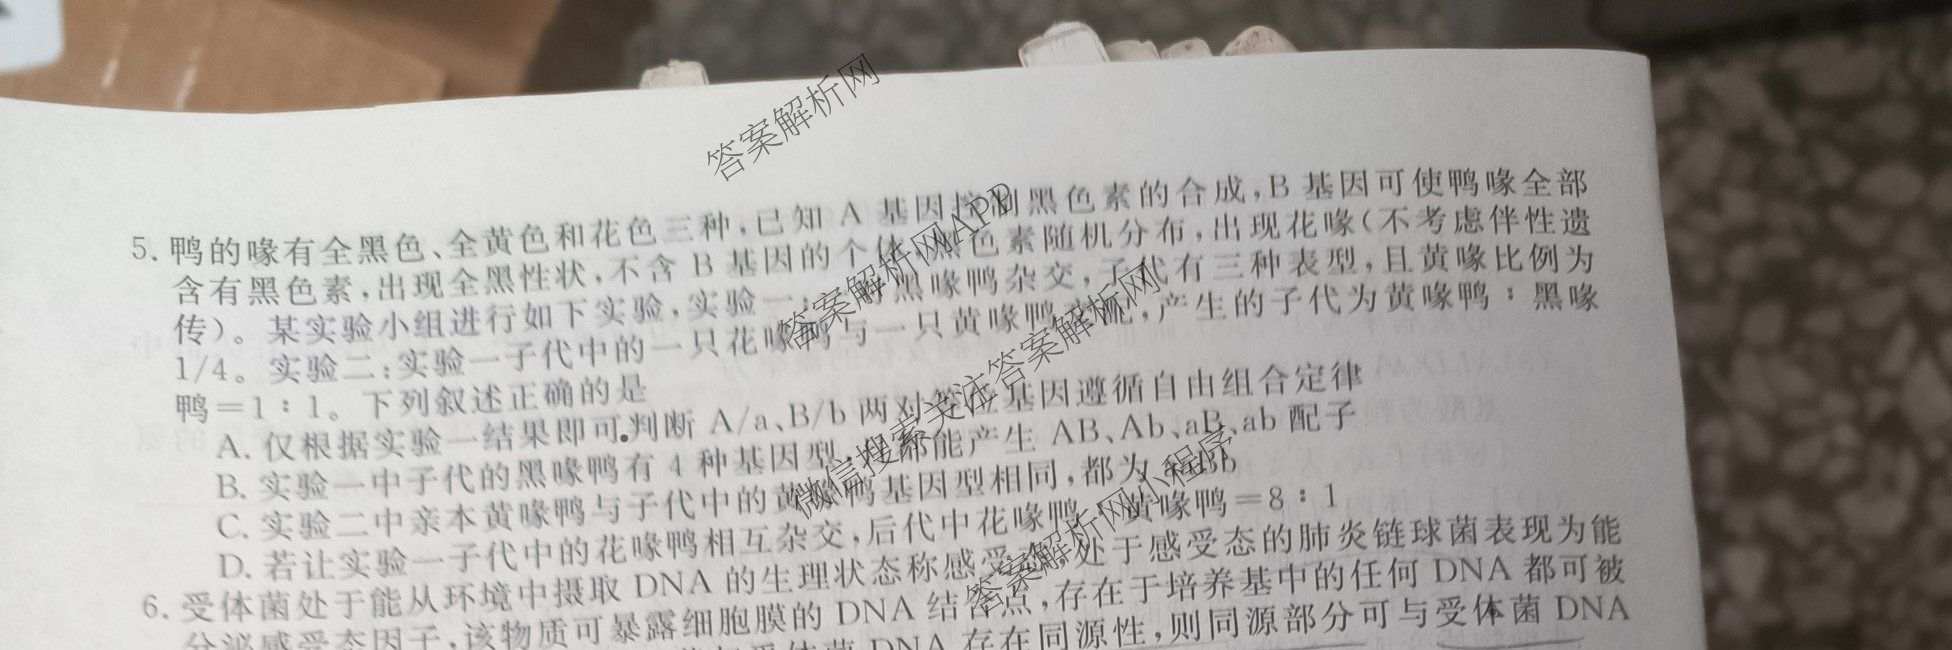 5. 鸭的喙有全黑色、全黄色和花色三种,已知 A 基因控制黑色素的合成,B 基因可使鸭喙全部
含有黑色素,出现全黑性状,不含 B 基因的个体,黑色素随机分布,出现花喙(不考虑伴性遗
传)。某实验小组进行如下实验,实验一:黑喙鸭杂交,子代有三种表型,且黄喙比例为
1/4。实验二:实验一子代中的一只花喙鸭与一只黄喙鸭,产生的子代为黄喙鸭∶黑喙
鸭=1∶1。下列叙述正确的是
A. 仅根据实验一结果即可判断 A/a、B/b 两对等位基因遵循自由组合定律
B. 实验一中子代的黑喙鸭有 4 种基因型,都能产生 AB、Ab、aB、ab 配子
C. 实验二中亲本黄喙鸭与子代中的黄喙鸭基因型相同,都为
D. 若让实验一子代中的花喙鸭相互杂交,后代中花喙鸭∶黄喙鸭=8∶1
6. 受体菌处于能从环境中摄取 DNA 的生理状态称感受态,处于感受态的肺炎链球菌表现为能
分泌感受态因子,该物质可暴露细胞膜的 DNA 结合点,存在于培养基中的任何 DNA 都可被
受体菌 DNA 存在同源性,则同源部分可与受体菌 DNA
答案解析网
答案解析网APP
微信搜索关注答案解析网
答案解析网小程序